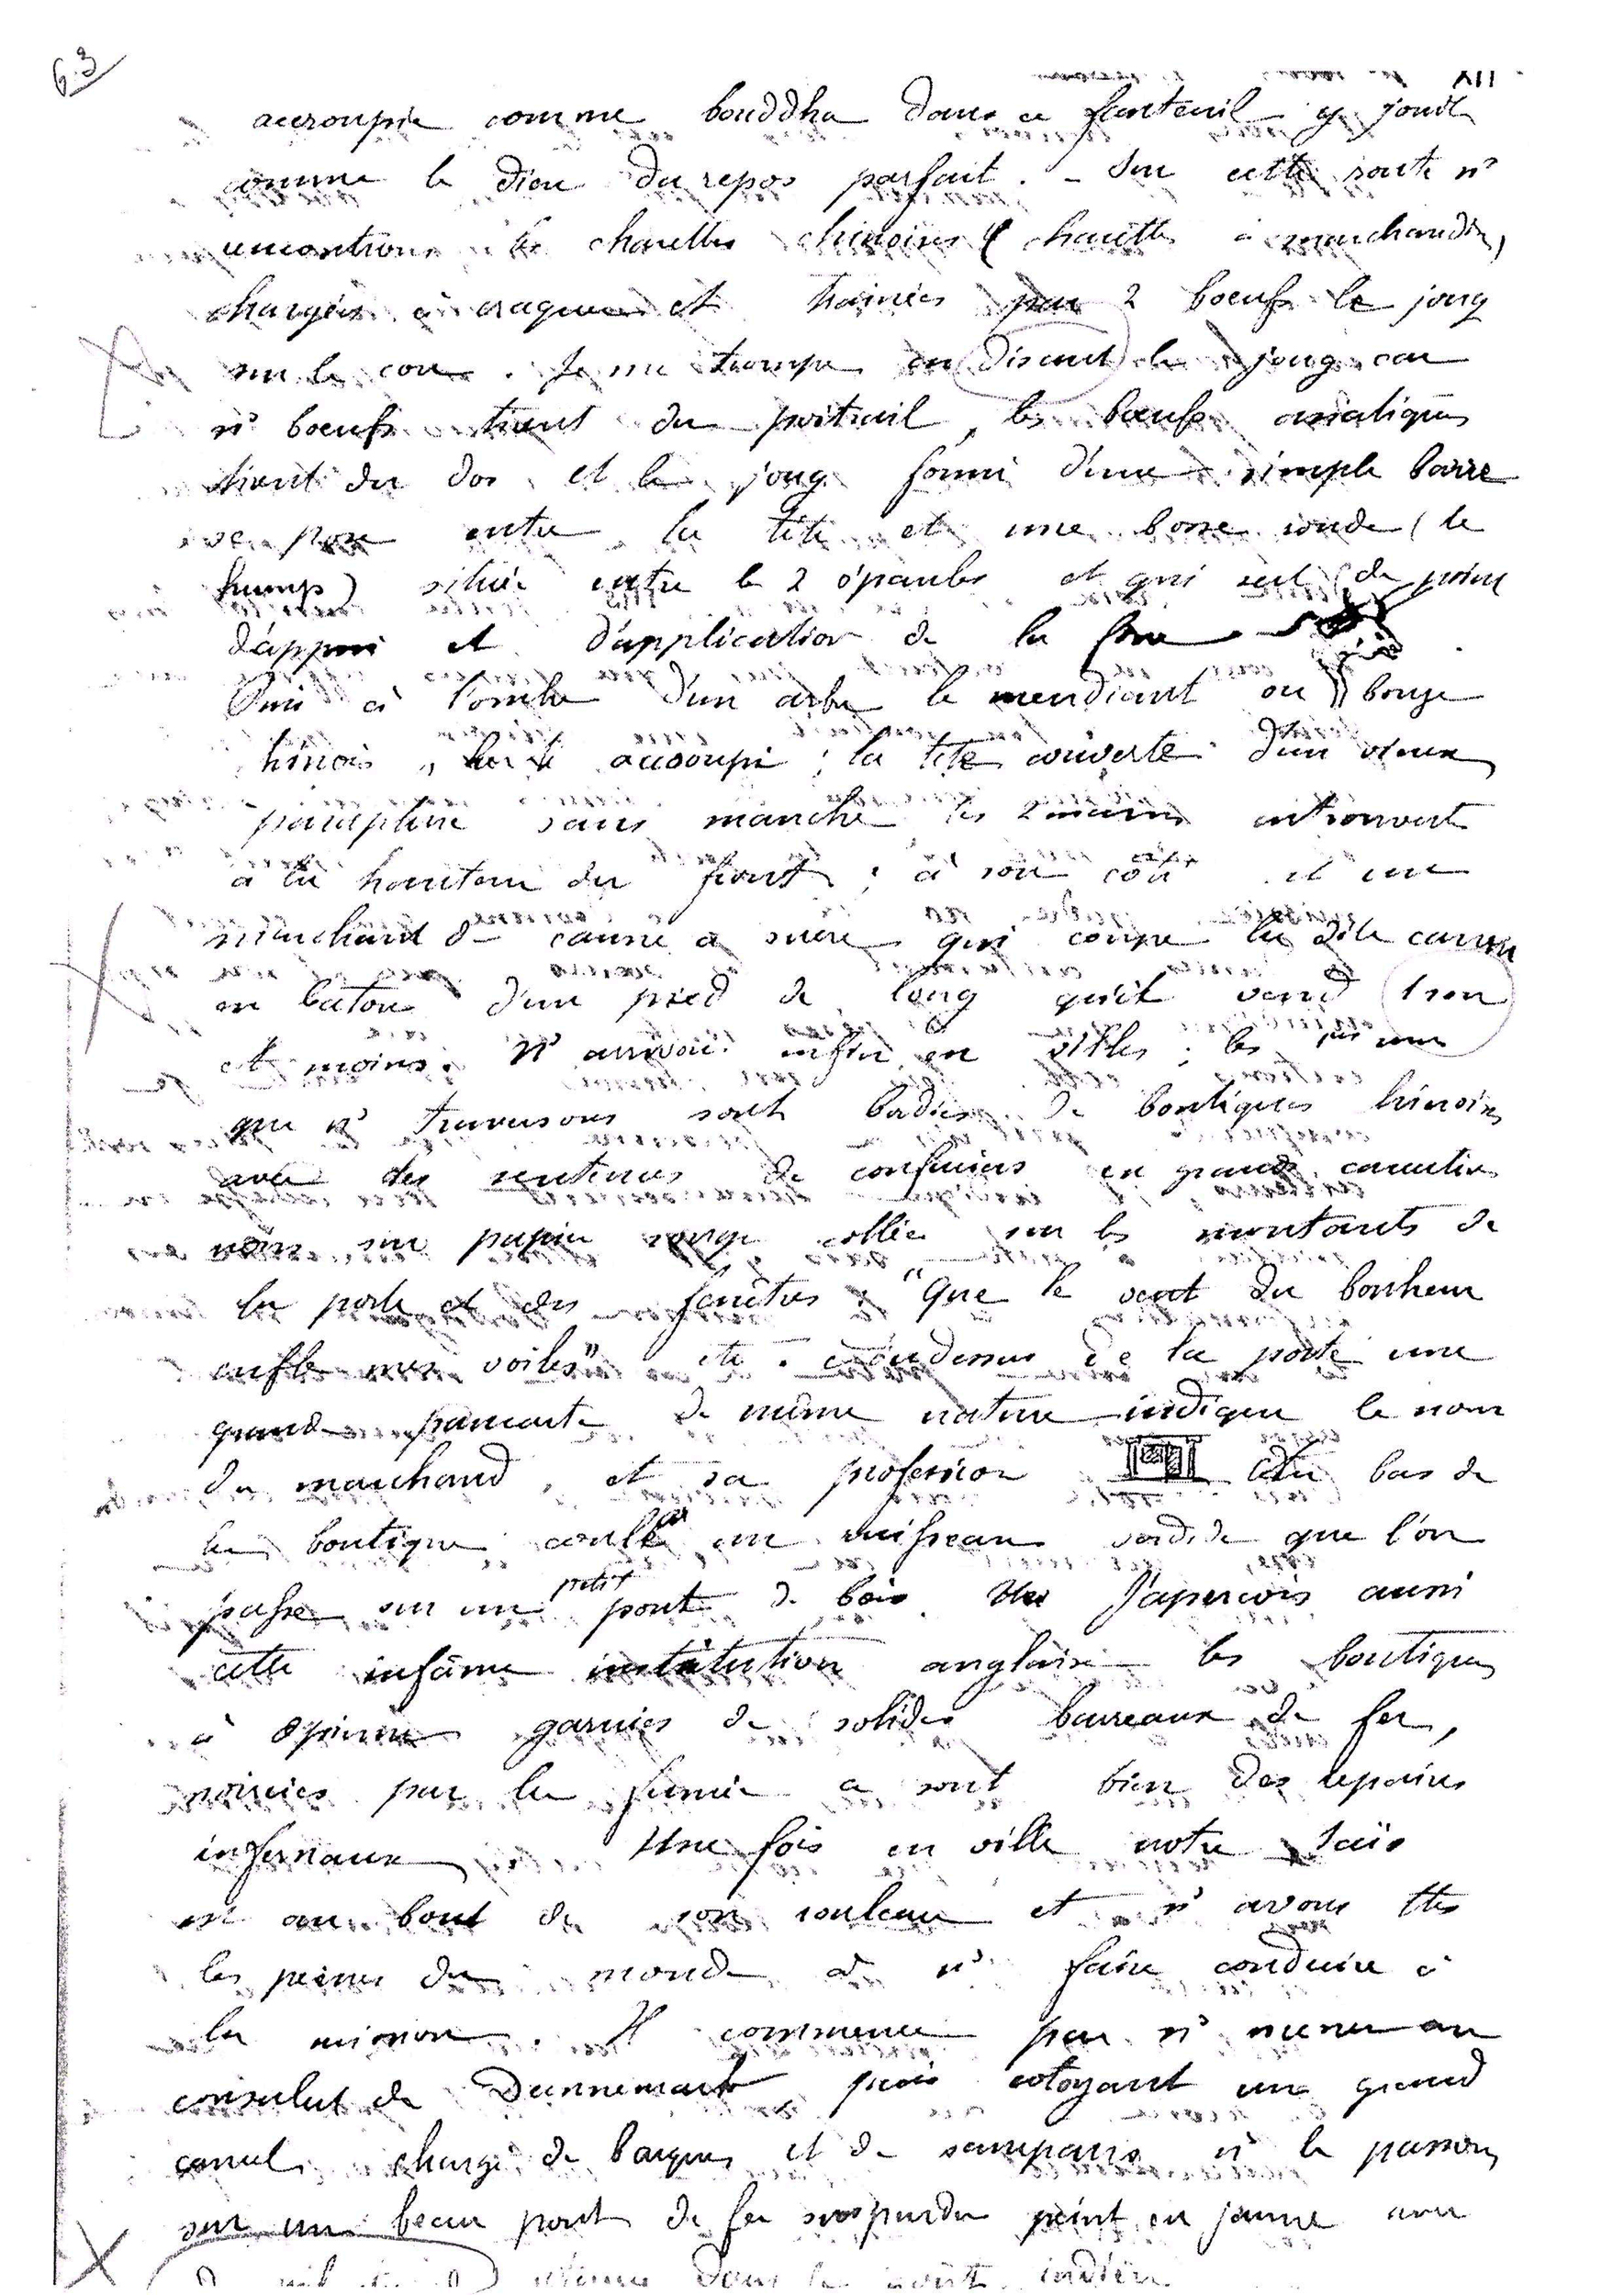 63
XII
accroupie comme bouddha dans ce fauteuil y jouit
comme le dieu du repos parfait. - Sur cette route ns
rencontrons les charettes chinoises ( charette à marchandise,
chargées à craquer et trainées par 2 boeufs le joug
sur le cou. Je me trompe en disant le joug car
ns boeufs tirent du poitrail, les boeufs asiatiques
tirent du dos et le joug formé d'une simple barre
se pose entre la tête et une bosse ronde (le
hump) située entre les 2 épaules et qui sert de point
d'appui et d'application de la force
Puis à l'ombre d'un arbre le mendiant ou bonze
hinois, accroupi; la tête couverte d'un vieux
parapluie sans manche les 2 mains entrouvertes
à la hauteur du front; à son côté est un
marchand de canne à sucre qui coupe la dite canne
en batons d'un pied de long qu'il vend 1 sou
et moins. Ns arrivons enfin en villes; les 1res rues
que ns traversons sont bordées de boutiques hinoises
avec des sentences de confucius en grands caractères
noirs sur papier rouge collées sur les montants de
la porte et des fenêtres: "Que le vent du bonheur
enfle mes voiles" etc. au dessus de la porte une
grande pancarte de même nature indique le nom
du marchand, et sa profession Au bas de
la boutique coule un ruisseau sordide que l'on
passe sur un petit pont de bois J'apercois aussi
cette infâme institution anglaise les boutiques
à opium garnies de solides barreaux de fer,
noircies par la fumée ce sont bien des repaires
infernaux. Une fois en ville notre Saïs
est au bout de son rouleau et ns avons ttes
les peines du monde à ns faire conduire à
la mission. Il commence par ns mener au
consulat de Dannemark puis cotoyant un grand
canal chargé de barques et de sampans ns le passons
sur un beau pont de fer suspendu peint en jaune avec
dans le goût indien